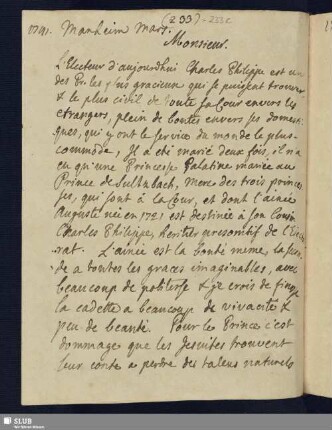 (233) - 233c
1741. Manheim Mars.
Monsieur.
L'Electeur d'aujourdhui Charles Philippe est un
des Pr. les plus gracieux qui se puissent trouver
& le plus civil de toute sa Cour envers les
etrangers, plein de bontes envers ses domesti-
ques, qui y ont le service du monde le plus
commode, Il a eté marié deux fois, il n'a
eu qu'une Princesse Palatine mariée au
Prince de Sultzbach, Mere des trois princes-
ses, qui sont à la Cour, et dont l'ainée
Auguste née en 1721 est destinée à son Cousin
Charles Philippe, heritier presomtif de l'Electo-
rat. L'ainée est la bonté meme, la secon-
de a toutes les graces imaginables, avec
beaucoup de politesse & je crois de finesse
la cadette a beaucoup de vivacité &
peu de beauté. Pour le Prince c'est
dommage que les Jesuites trouvent
leur conte a perdre des talens naturels
SLUB